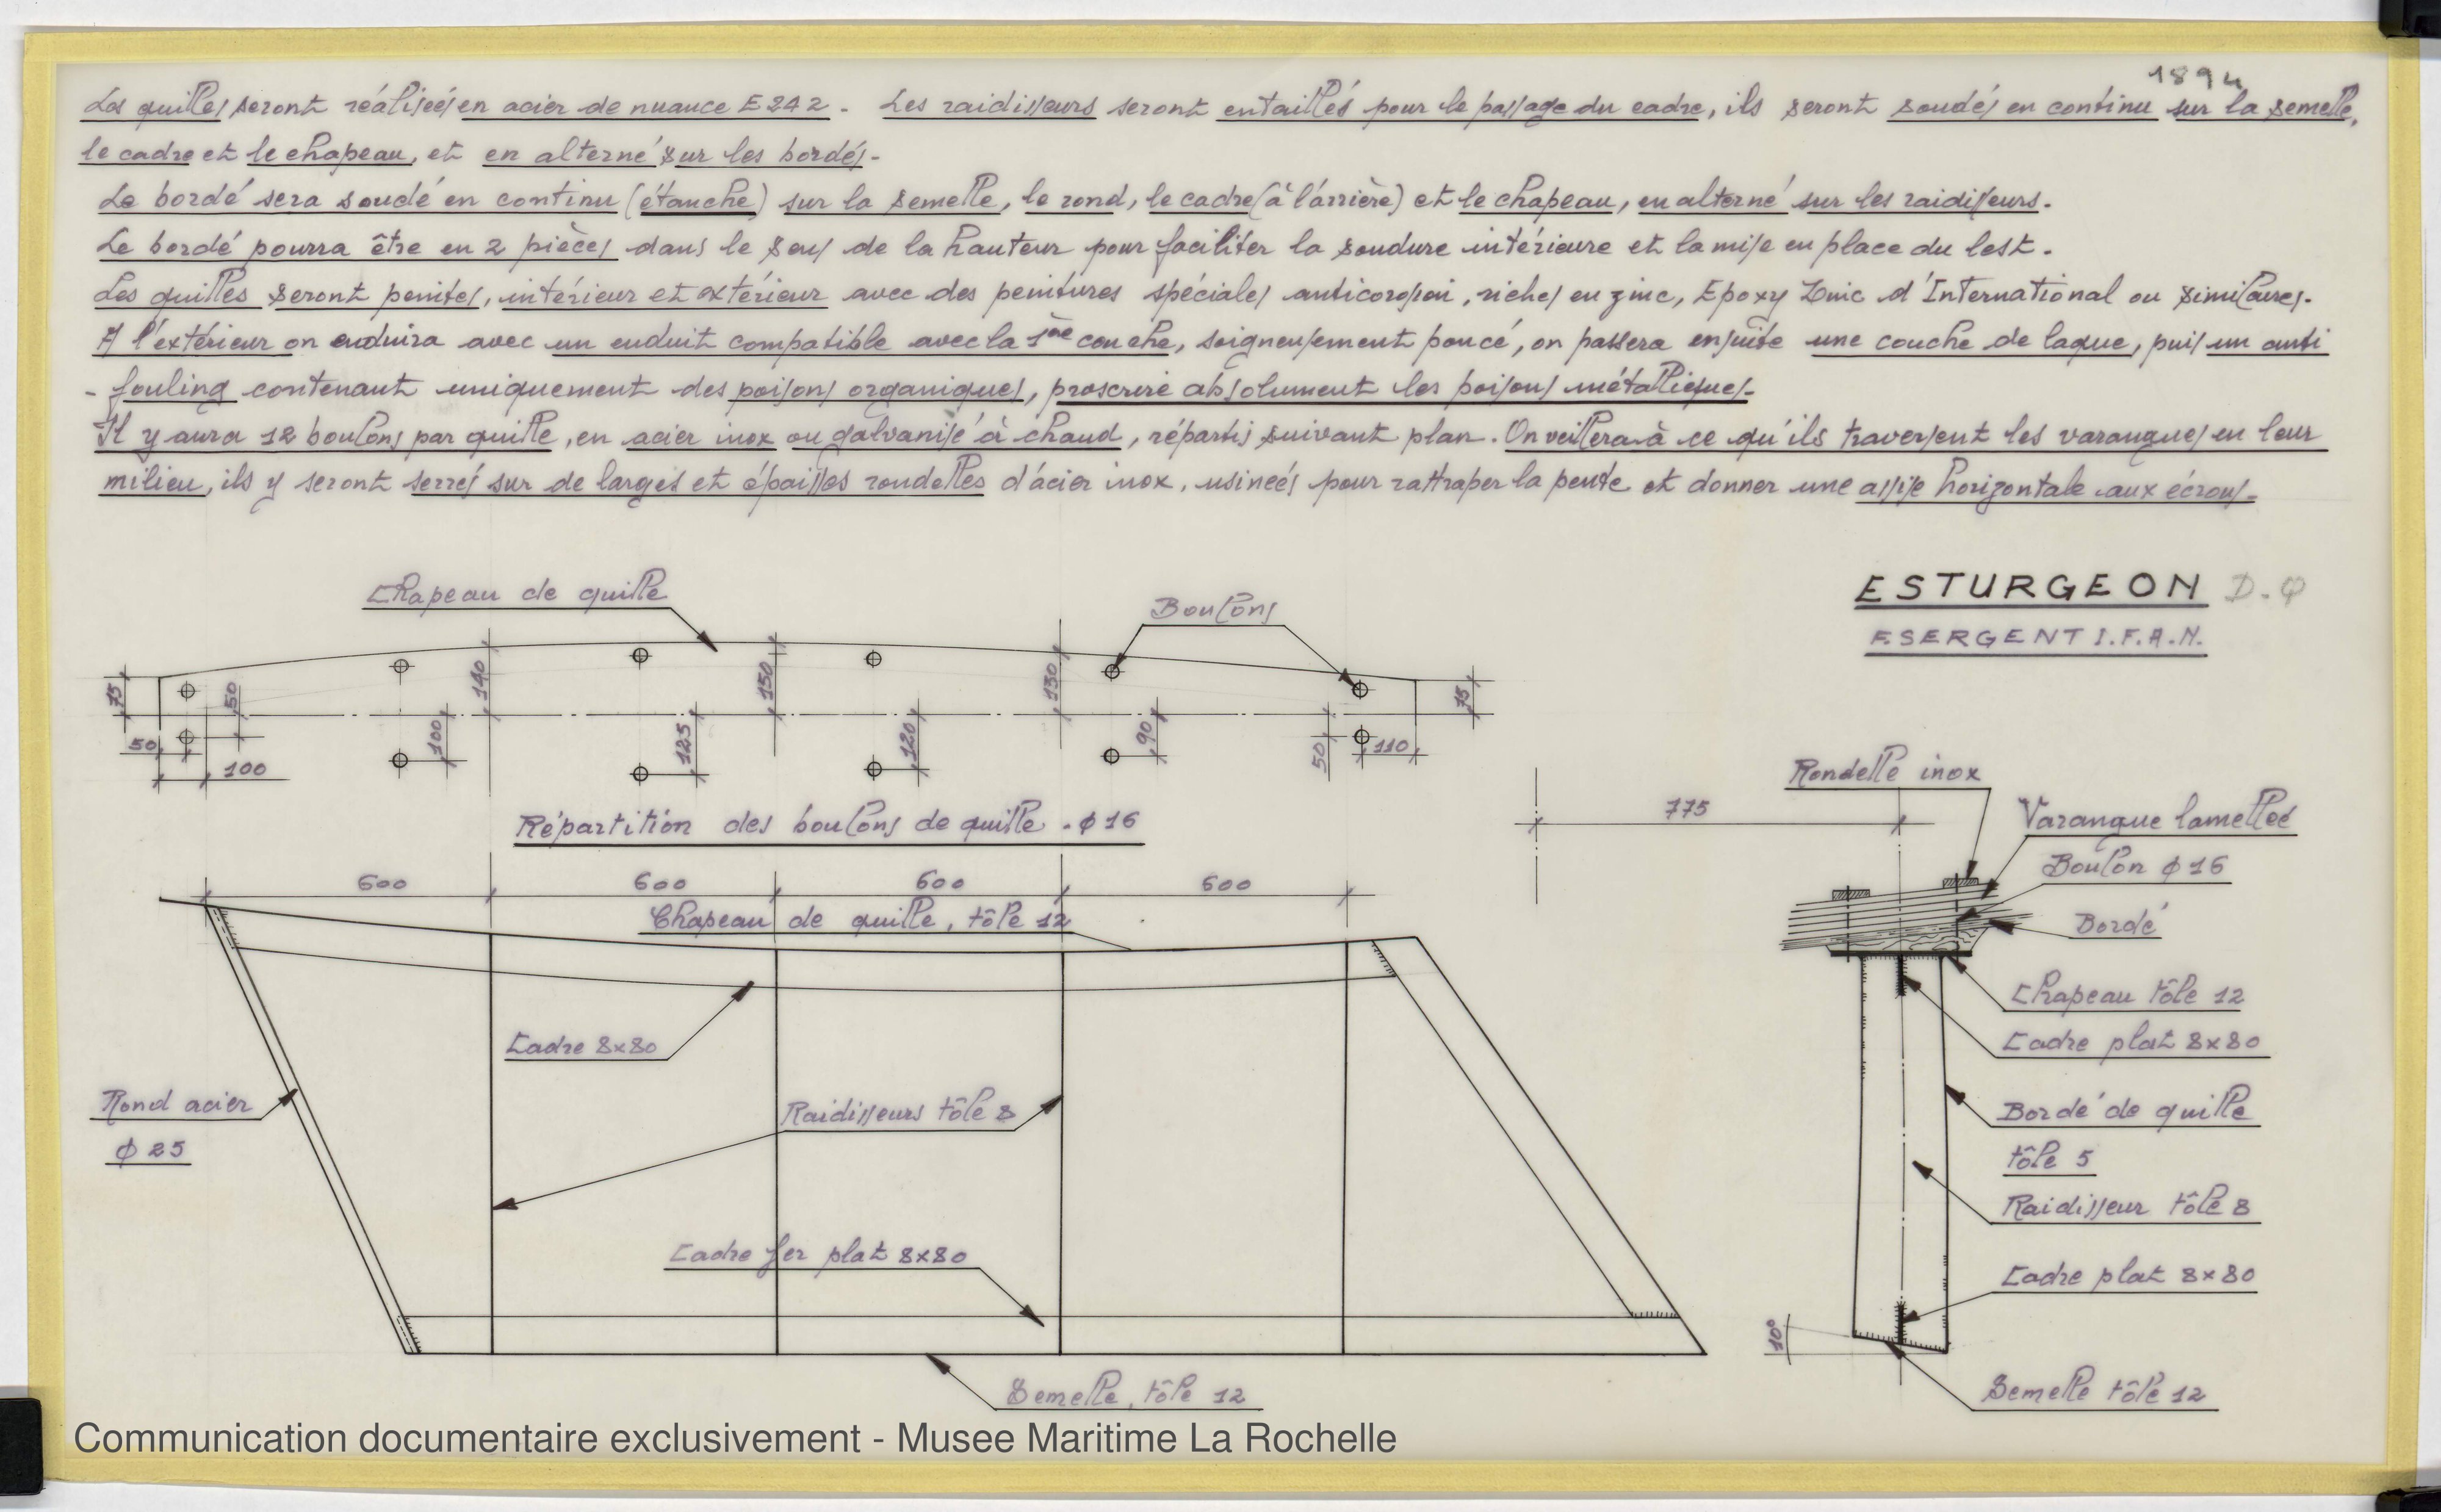 1894
Les quilles seront réalisées en acier de nuance E 24 2 - Les raidisseurs seront entaillés pour le passage du cadre, ils seront soudés en continu sur la semelle,
le cadre et le chapeau, et en alterné sur les bordés-
Le bordé sera soudé en continu (étanche) sur la semelle, le rond, le cadre (à l'arrière) et le chapeau, en alterné sur les raidisseurs.
Le bordé pourra être en 2 pièces dans le sens de la hauteur pour faciliter la soudure intérieure et la mise en place du lest.
Les quilles seront peintes, intérieur et extérieur avec des peintures spéciales anticorosion, riches en zinc, Epoxy Zinc d'International ou similaires.
A l'extérieur on enduira avec un enduit compatible avec la 1ère couche, soigneusement poncé, on passera ensuite une couche de laque, puis un anti
- fouling contenant uniquement des poisons organiques, proscrire absolument les poisons métalliques-
Il y aura 12 boulons par quille, en acier inox ou galvanisé à chaud, répartis suivant plan. On veillera à ce qu'ils traversent les varangues en leur
milieu, ils y seront serrés sur de larges et épaisses rondelles d'acier inox, usinées pour rattraper la pente et donner une assise horizontale aux écrous-
ESTURGEON D.Q
F.SERGENT I.F.A.N.
Chapeau de quille
Boulons
75
50
140
150
130
75
50
100
100
125
120
90
50
110
Répartition des boulons de quille . ϕ 16
775
600
600
600
600
Chapeau de quille, tôle 12
Cadre 8x80
Rond acier
ϕ 25
Raidisseurs tôle 8
Cadre fer plat 8x80
Semelle, tôle 12
Rondelle inox
Varangue lamellée
Boulon ϕ 16
Bordé
Chapeau tôle 12
Cadre plat 8x80
Bordé de quille
tôle 5
Raidisseur tôle 8
Cadre plat 8x80
10°
Semelle tôle 12
Communication documentaire exclusivement - Musee Maritime La Rochelle